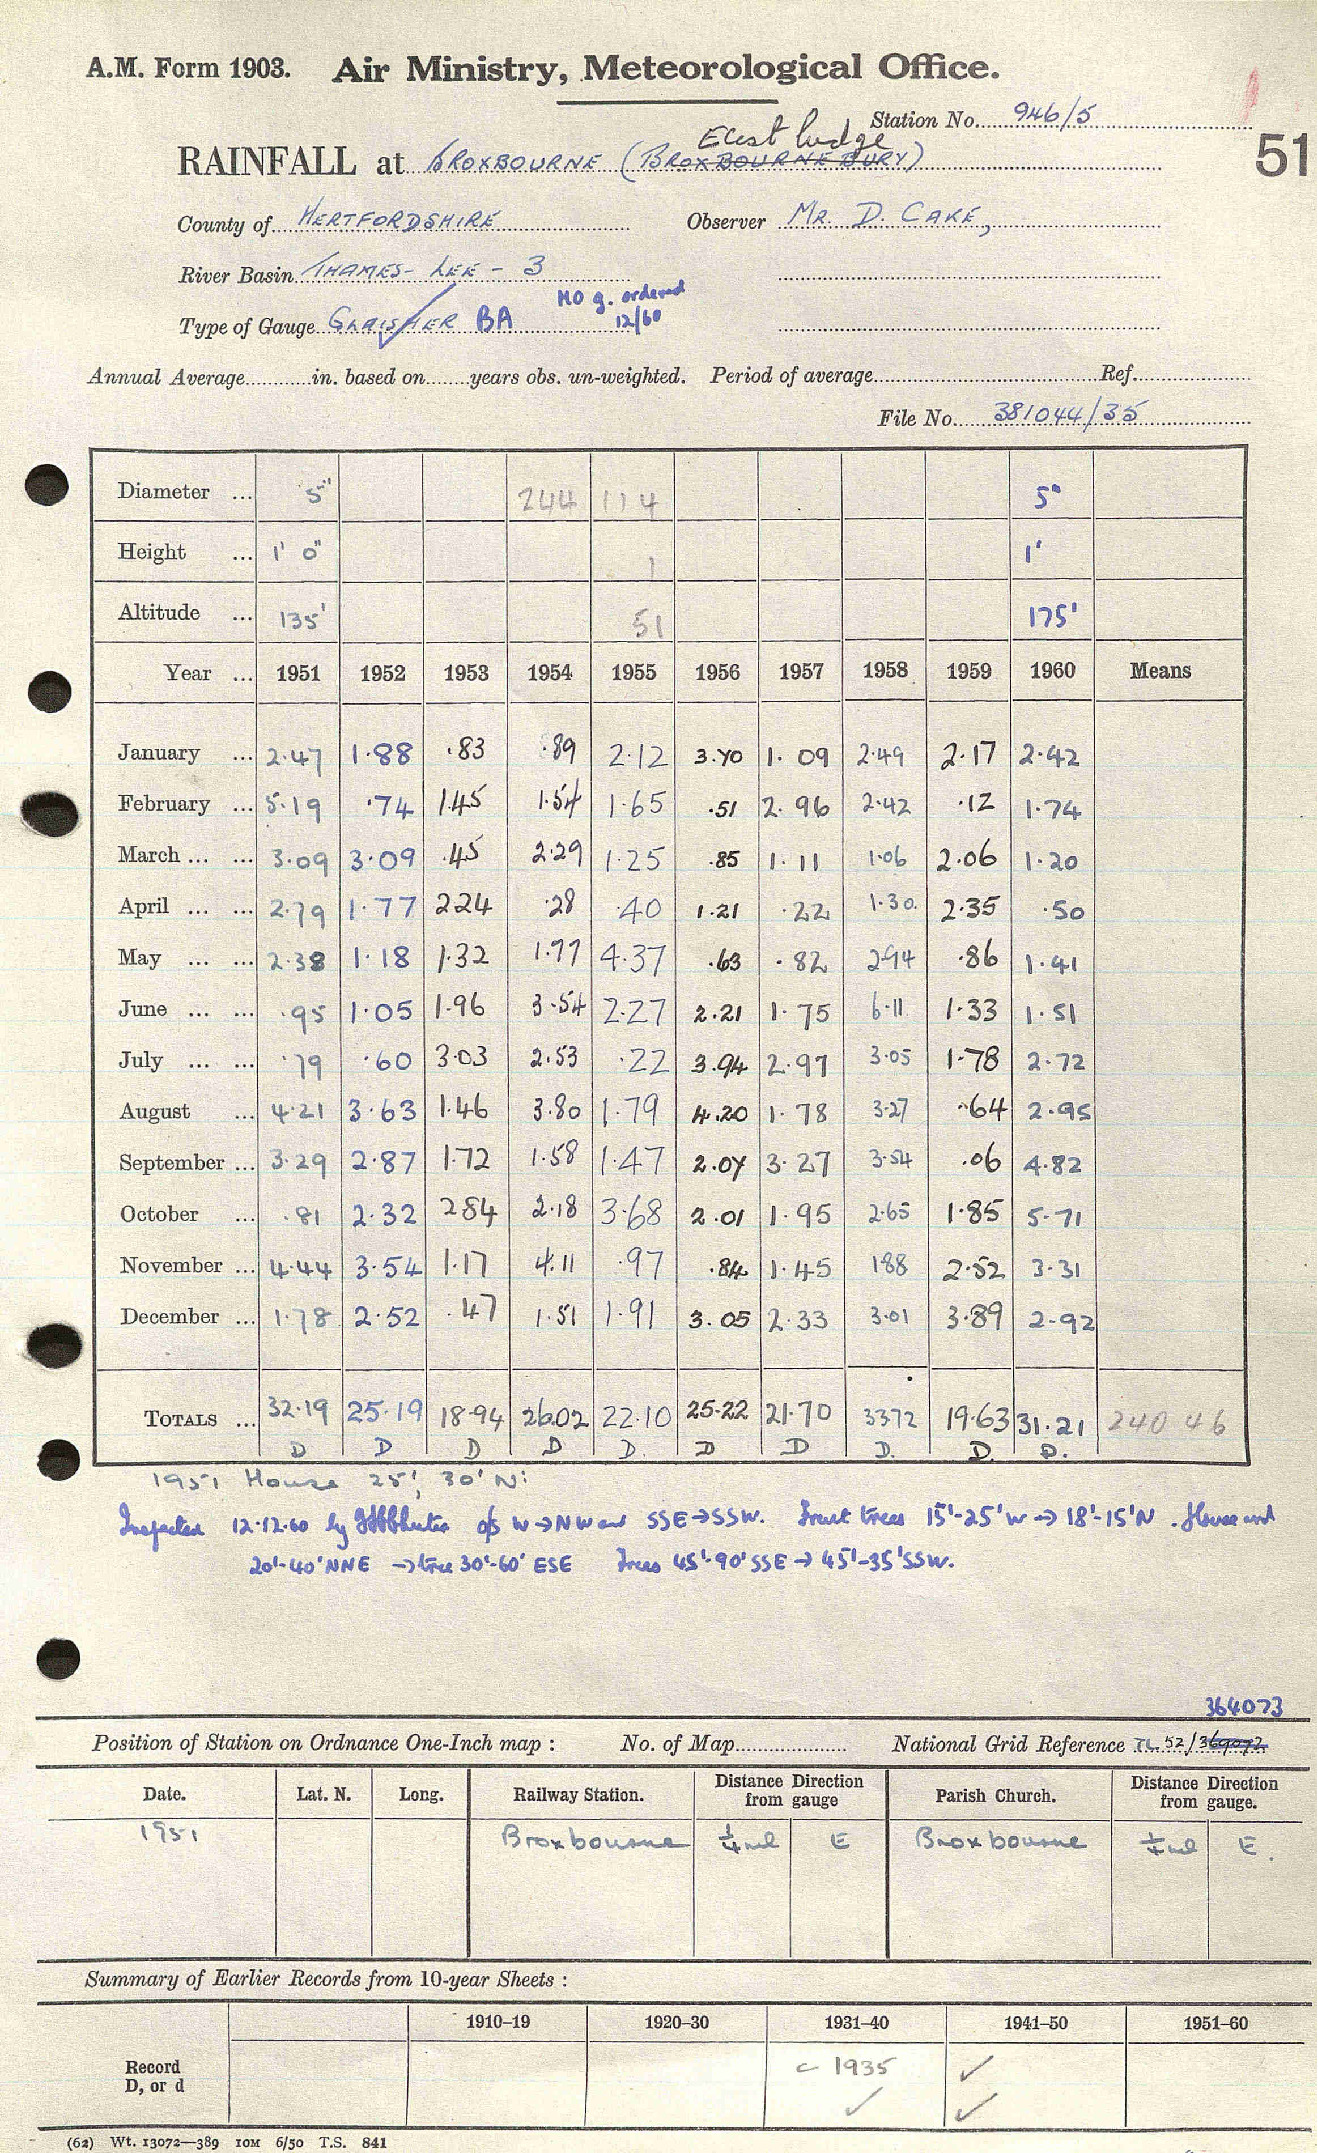 A.M. Form 1903. Air Ministry, Meteorological Office.
Station No. 946/5
51
East Lodge
RAINFALL at BROXBOURNE (BROXBOURNE BURY)
County of HERTFORDSHIRE Observer MR. D. CAKE,
River Basin THAMES - LEE - 3
MO g. ordered
Type of Gauge GLAISHER BA 12/60
Annual Average in. based on years obs. un-weighted. Period of average Ref.
File No. 381044/35
Diameter ... 5" 244 114 5"
Height ... 1' 0" 1 1'
Altitude ... 135' 51 175'
Year ... 1951 1952 1953 1954 1955 1956 1957 1958 1959 1960 Means
January ... 2.47 1.88 .83 .89 2.12 3.70 1.09 2.49 2.17 2.42
February ... 5.19 .74 1.45 1.54 1.65 .51 2.96 2.42 .12 1.74
March ... ... 3.09 3.09 .45 2.29 1.25 .85 1.11 1.06 2.06 1.20
April ... ... 2.79 1.77 2.24 .28 .40 1.21 .22 1.30 2.35 .50
May ... ... 2.38 1.18 1.32 1.77 4.37 .63 .82 2.94 .86 1.41
June ... ... .95 1.05 1.96 3.54 2.27 2.21 1.75 6.11 1.33 1.51
July ... ... .79 .60 3.03 2.53 .22 3.94 2.97 3.05 1.78 2.72
August ... 4.21 3.63 1.46 3.80 1.79 4.20 1.78 3.27 .64 2.95
September ... 3.29 2.87 1.72 1.58 1.47 2.07 3.27 3.54 .06 4.82
October ... .81 2.32 2.84 2.18 3.68 2.01 1.95 2.65 1.85 5.71
November ... 4.44 3.54 1.17 4.11 .97 .84 1.45 1.88 2.52 3.31
December ... 1.78 2.52 .47 1.51 1.91 3.05 2.33 3.01 3.89 2.92
TOTALS ... 32.19 25.19 18.94 26.02 22.10 25.22 21.70 33.72 19.63 31.21 240 46
D D D D D. D D D. D. D.
1951 House 25', 30' N:
Inspected 12.12.60 by o/s W→NW and SSE→SSW. Fruit trees 15'-25' W → 18'-15' N. House and
20'-40' NNE → tree 30'-60' ESE Trees 45'-90' SSE → 45'-35' SSW.
364073
Position of Station on Ordnance One-Inch map : No. of Map National Grid Reference TL 52/369072
Date. Lat. N. Long. Railway Station. Distance from gauge Direction Parish Church. Distance from gauge. Direction
1951 Broxbourne ¼ ml E Broxbourne ¼ ml E.
Summary of Earlier Records from 10-year Sheets :
1910–19 1920–30 1931–40 1941–50 1951–60
Record c 1935 ✓
D, or d ✓ ✓
(62) Wt. 13072—389 10M 6/50 T.S. 841